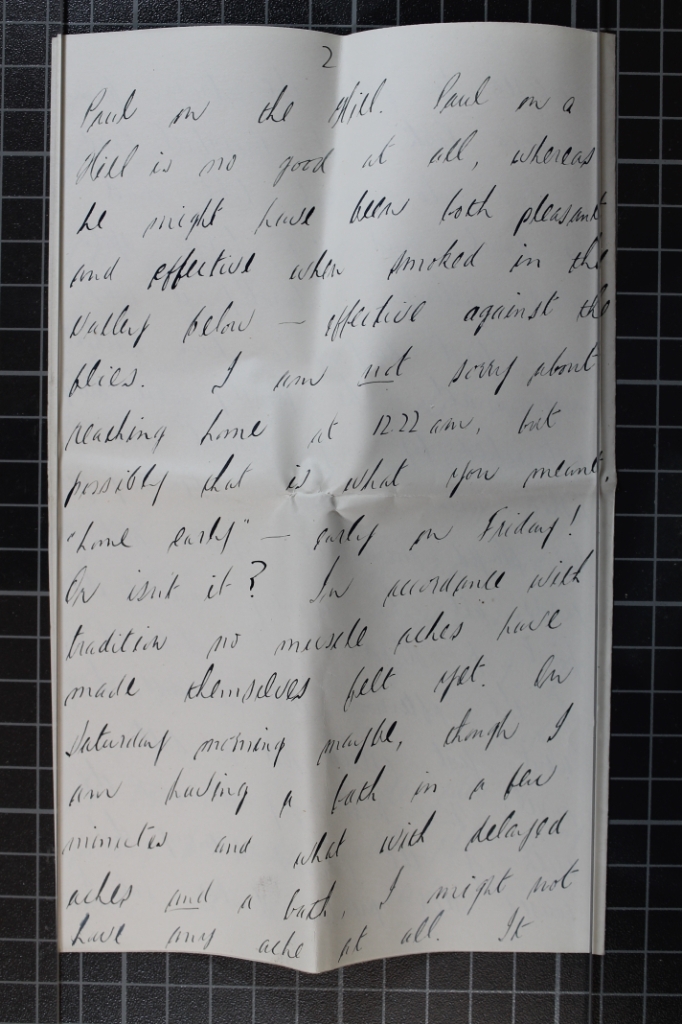 2
Paul on the Hill. Paul on a
Hill is no good at all, whereas
he might have been both pleasant
and effective when smoked in the
Valley below — effective against the
flies. I am not sorry about
reaching home at 12.22 am, but
possibly that is what you meant,
"home early" — early on Friday!
Or isn't it? In accordance with
tradition no muscle aches have
made themselves felt yet. On
Saturday morning maybe, though I
am having a bath in a few
minutes and what with delayed
aches and a bath, I might not
have any ache at all. It